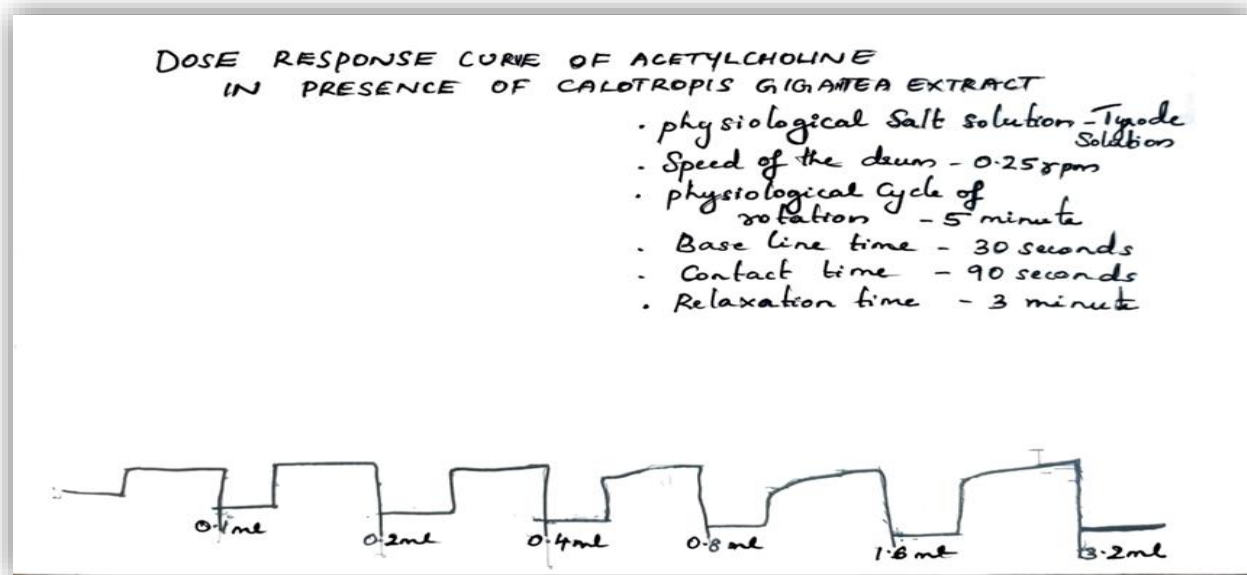 DOSE RESPONSE CURVE OF ACETYLCHOLINE
IN PRESENCE OF CALOTROPIS GIGANTEA EXTRACT
. physiological Salt solution - Tyrode
Solution
. Speed of the drum - 0.25 rpm
. physiological Cycle of
rotation - 5 minute
. Base line time - 30 seconds
. Contact time - 90 seconds
. Relaxation time - 3 minute
0.1 ml 0.2 ml 0.4 ml 0.8 ml 1.6 ml 3.2 ml